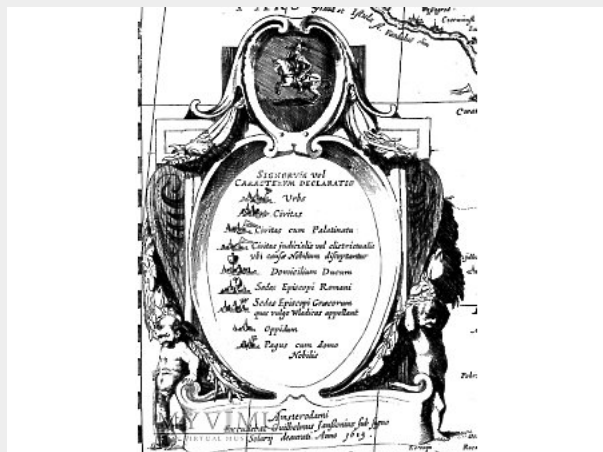 Istula fl. Vandalus
SIGNORVM vel
CARACTERVM DECLARATIO
Urbs
Civitas
Civitas cum Palatinatu
Civitas judicialis vel districtualis
vbi causæ Nobilium disceptantur
Domicilium Ducum
Sedes Episcopi Romani
Sedes Episcopi Græcorum
quos vulgo Wladicas appellant
Oppidum
Pagus cum domo
Nobilis
Amsterodami
Excudebat Guilhelmus Janssonius sub signo
Solarij deaurati Anno 1613.
MYVIMU
VIRTUAL MUS